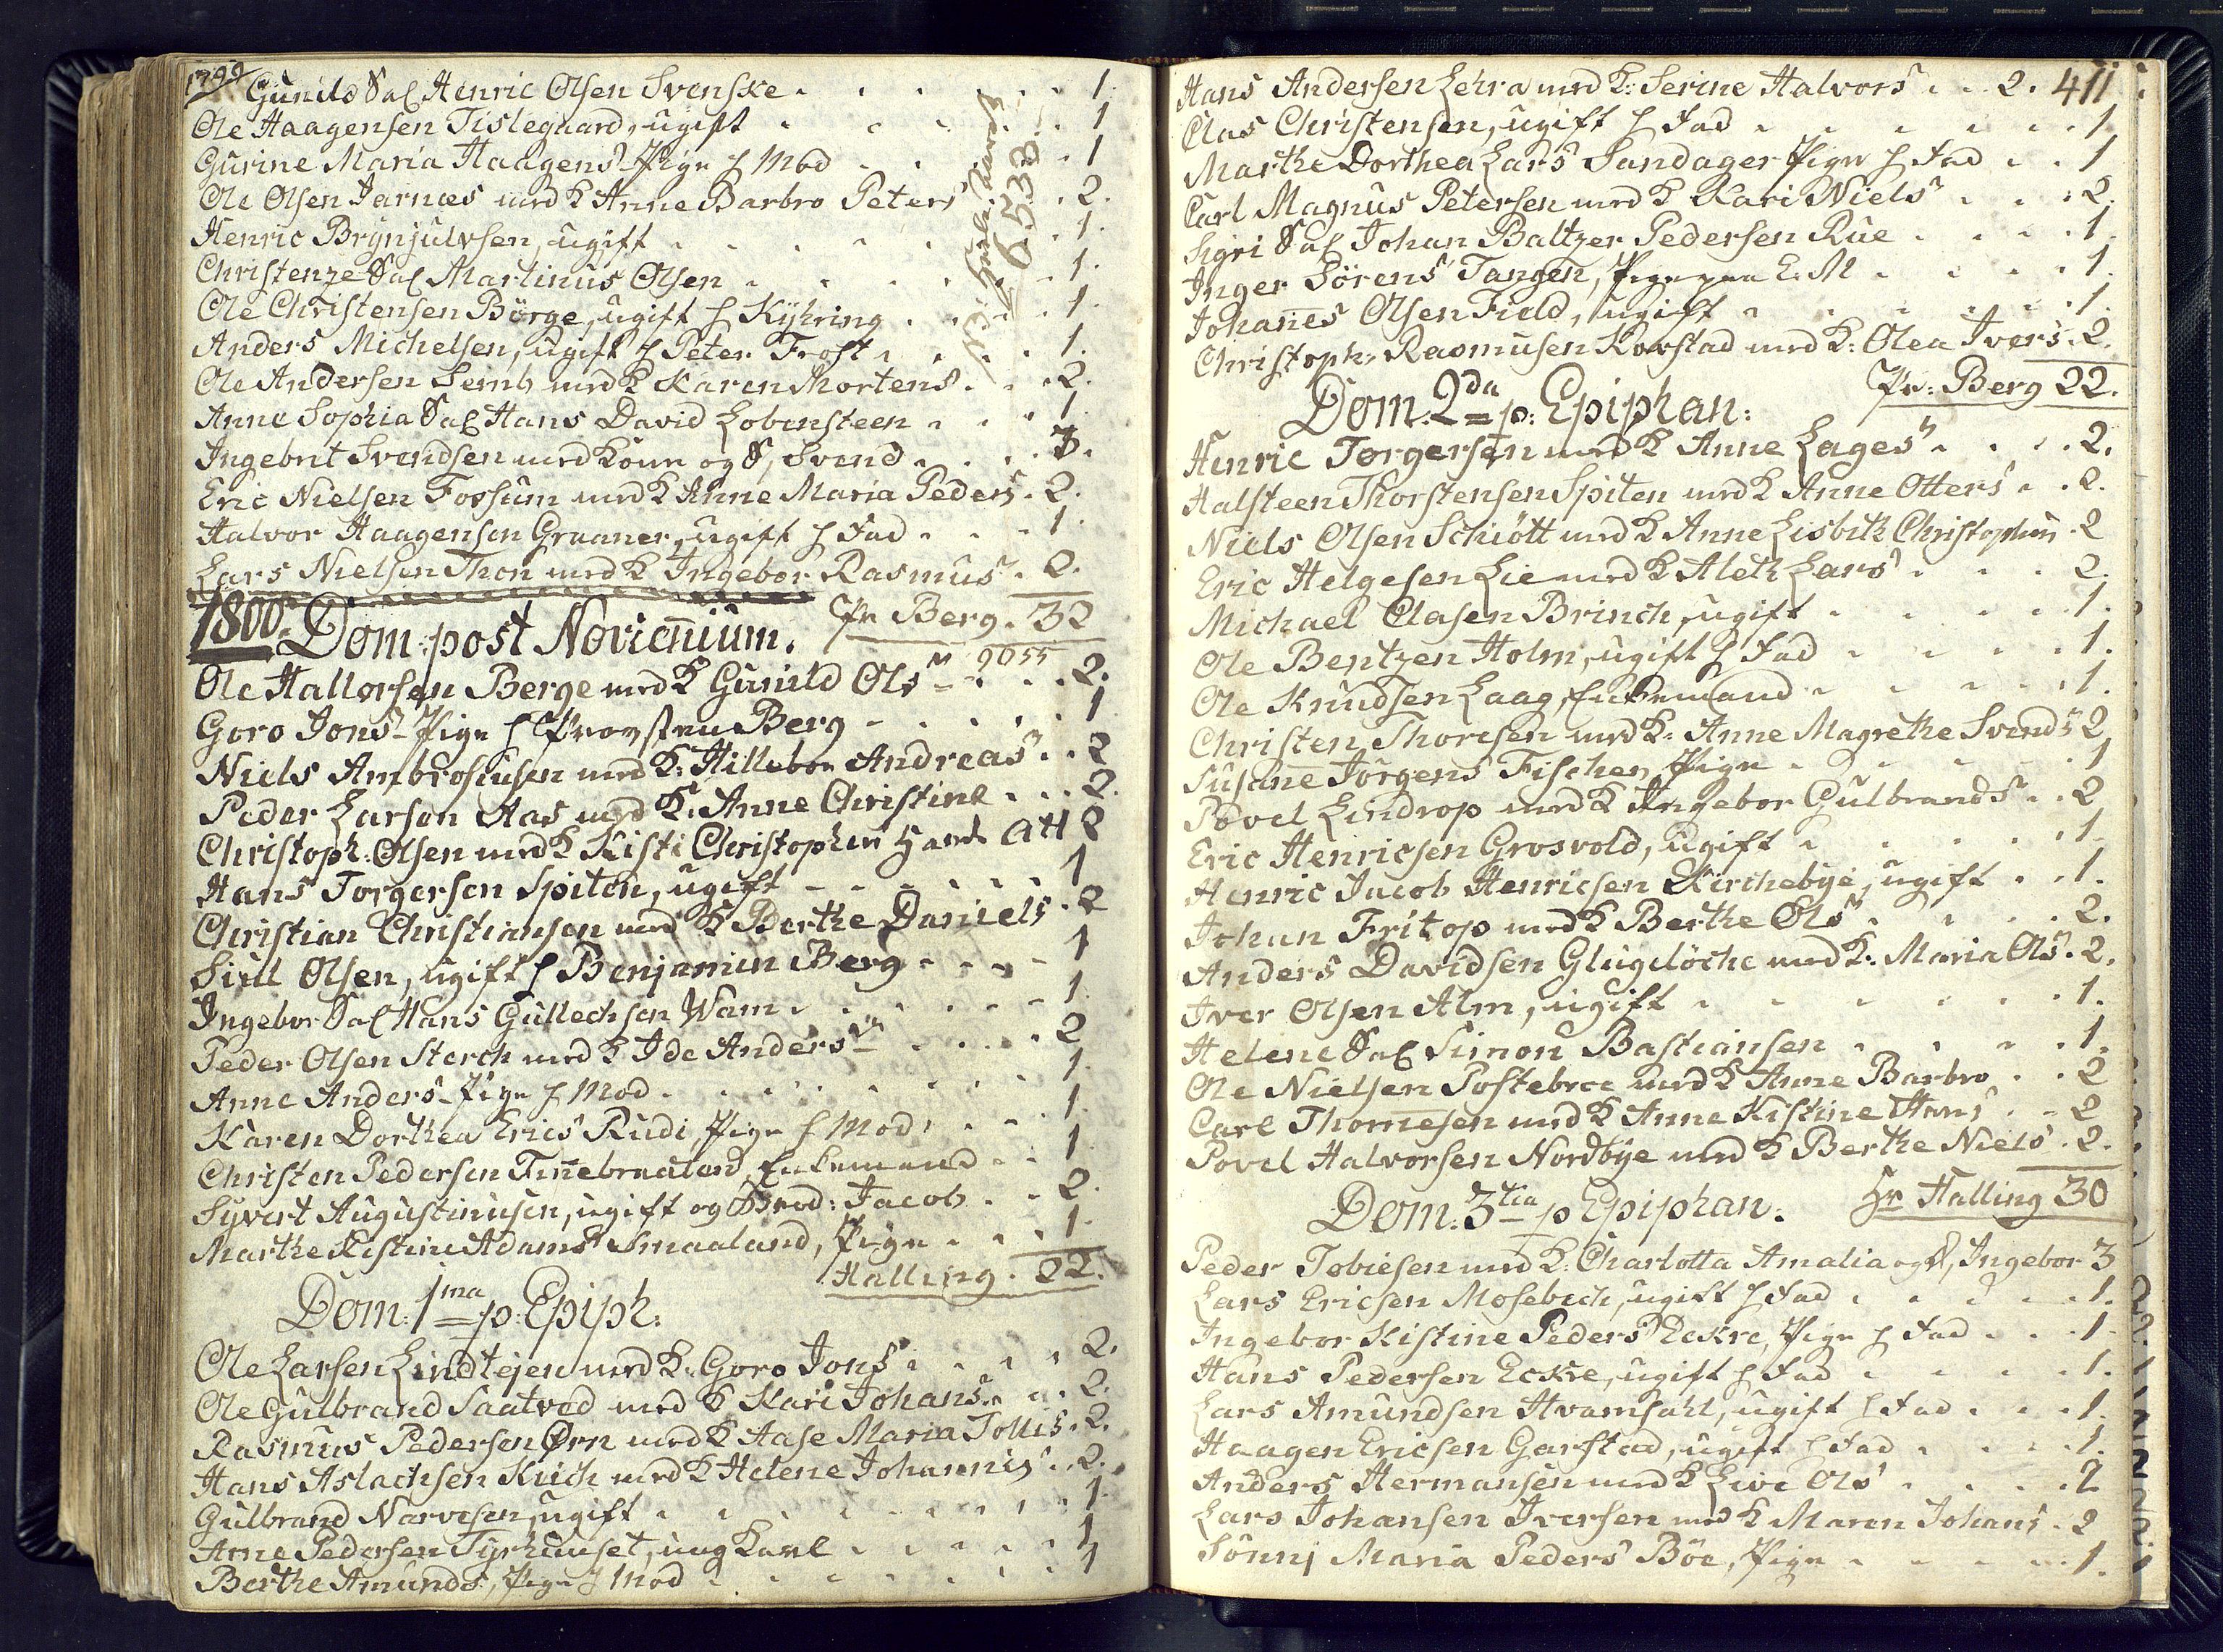 1799
Gunild Sal Henric Olsen Svenske . . . 1.
Ole Haagensen Tislegaard, ugift . . . 1
Gurine Maria Haagens Pige h Mod . . . 1
Ole Olsen Jarnæs med K Anne Barbro Peters . 2.
Henric Brynjulvsen, ugift . . . 1.
Christenze Sal Martinus Olsen . . . 1.
Ole Christensen Börge, ugift h Kyhring . . . 1.
Anders Michelsen, ugift h Peter Frost . . . 1.
Ole Andersen Semb med K Karen Mortens . . . 2.
Anne Sophia Sal Hans David Lobensteen . . . 1.
Ingebret Svendsen med Kone og S, Svend . . . 3.
Eric Nielsen Fossum med K Anne Maria Peders . 2.
Halvor Haagensen Graaner, ugift h Fad . . . 1.
Lars Nielsen Thon med K Ingebor Rasmus . 2.
6533
Pr Berg . 32
1800. Dom: post Novennium.
2055
Ole Hallorsen Berge med K Gunild Ols . . . 2.
Goro Jons Pige h Provsten Berg . . . 1
Niels Ambrosiusen med K: Hillebor Andreas . . 2
Peder Larson Aas med K. Anne Christine . . . 2.
Christoph: Olsen med K Kisti Christophers 2
Hans Torgersen Spiten, ugift . . . 1
Christian Christiansen med K Berthe Daniels . 2
Siul Olsen, ugift h Benjamin Berg . . . 1
Ingebor Sal Hans Gullechsen Wam . . . 1.
Peder Olsen Sterch med K Ide Anders . . . 2
Anne Anders Pige h Mod . . . 1.
Karen Dorthea Erics Rudi, Pige h Mod . . . 1.
Christen Pedersen Finnebraaten, Enkemand . . 1
Syvert Augustinusen, ugift og Brod: Jacob . . 2.
Marthe Kistine Adams Smaaland, Pige . . . 1.
Halling . 22.
Dom: 1ma p: Epiph:
Ole Larsen Lindtejen med K. Goro Jons . . . 2.
Ole Gulbrand Saatved med K Kari Johans . . 2.
Rasmus Pedersen Ørn med K Aase Maria Tollis . 2.
Hans Aslachsen Krich med K Helene Johannis . . 2.
Gulbrand Narvesen, ugift . . . 1
Arne Pedersen Tyrihuuset, ung Karl . . . 1
Berthe Amunds, Pige h Mod . . . 1
411
Hans Andersen Lehra med K: Serine Halvors . . 2.
Clas Christensen, ugift h Fad . . . 1
Marthe Dorthea Lars Sandager Pige h Fad . . 1
Carl Magnus Petersen med K Kari Niels . . . 2.
Sigri Sal Johan Baltzer Pedersen Rue . . . 1.
Inger Sörens Tangen, Pige paa E. M . . . 1.
Johannes Olsen Field, ugift . . . 1.
Christoph: Rasmusen Korstad med K: Olea Ivers . 2.
Pr: Berg 22.
Dom. 2da p: Epiphan:
Henric Torgersen med K Anne Lages . . . 2.
Halsteen Thorstensen Spiten med K Anne Otters . . 2.
Niels Olsen Schiött med K Anne Lisbeth Christophers . 2
Eric Helgesen Lie med K Aleth Lars . . . 2.
Michael Clasen Brinch, ugift . . . 1.
Ole Bentzen Holm, ugift h Fad . . . 1.
Ole Knudsen Laag, Enkemand . . . 1.
Christen Thoresen med K: Anne Magrethe Svends 2
Susanne Jörgens Fischer, Pige . . . 1
Povel Lindrop med K Ingebor Gulbrands . . 2
Eric Henricsen Grosvold, ugift . . . 1
Henric Jacob Henricsen Kirchebye, ugift . . 1.
Johan Fritop med K Berthe Ols . . . 2.
Anders Davidsen Glugelöche med K: Maria Ols . 2.
Iver Olsen Alm, ugift . . . 1.
Helene Sal Simon Bastiansen . . . 1.
Ole Nielsen Postebree med K Anne Barbro . . 2
Carl Thomesen med K Anne Kistine Hans . . 2
Povel Halvorsen Nordbye med K Berthe Niels . 2.
Hr Halling 30
Dom: 3tia p Epiphan:
Peder Tobiesen med K. Charlotta Amalia og D, Ingebor 3
Lars Ericsen Mosebech, ugift h Fad . . . 1.
Ingebor Kistine Peders Eckre, Pige h Fad . . . 1.
Hans Pedersen Eckre, ugift h Fad . . . 1.
Lars Amundsen Hvamsahl, ugift h Fad . . . 1
Haagen Ericsen Garstad, ugift h Fad . . . 1.
Anders Hermansen med K Live Ols . . . 2
Lars Johansen Iversen med K Maren Johans . 2
Sönnj Maria Peders Böe, Pige . . . 1.